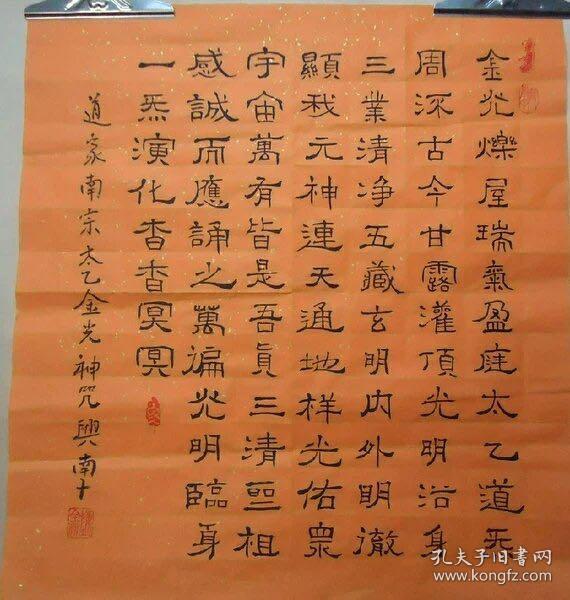 金光爍屋瑞氣盈庭太乙道炁
周流古今甘露灌頂光明浴身
三業清净五藏玄明内外明徹
顯我元神連天通地祥光佑眾
宇宙萬有皆是吾真三清聖祖
感誠而應誦之萬遍光明臨身
一炁演化杳杳冥冥
道家南宗太乙金光神咒興南十
孔夫子旧书网
www.kongfz.com